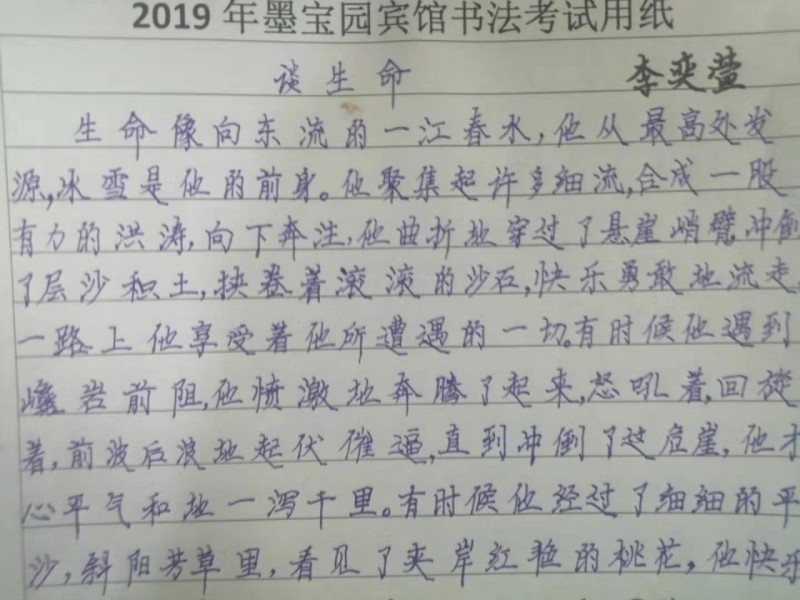 2019年墨宝园宾馆书法考试用纸
谈生命 李奕萱
生命像向东流的一江春水,他从最高处发
源,冰雪是他的前身。他聚集起许多细流,合成一股
有力的洪涛,向下奔注,他曲折地穿过了悬崖峭臂,冲倒
了层沙积土,挟卷着滚滚的沙石,快乐勇敢地流走,
一路上他享受着他所遭遇的一切。有时候他遇到
巉岩前阻,他愤激地奔腾了起来,怒吼着,回旋
着,前波后浪地起伏催逼,直到冲倒了这危崖,他才
心平气和地一泻千里。有时候他经过了细细的平
沙,斜阳芳草里,看见了夹岸红艳的桃花,他快乐